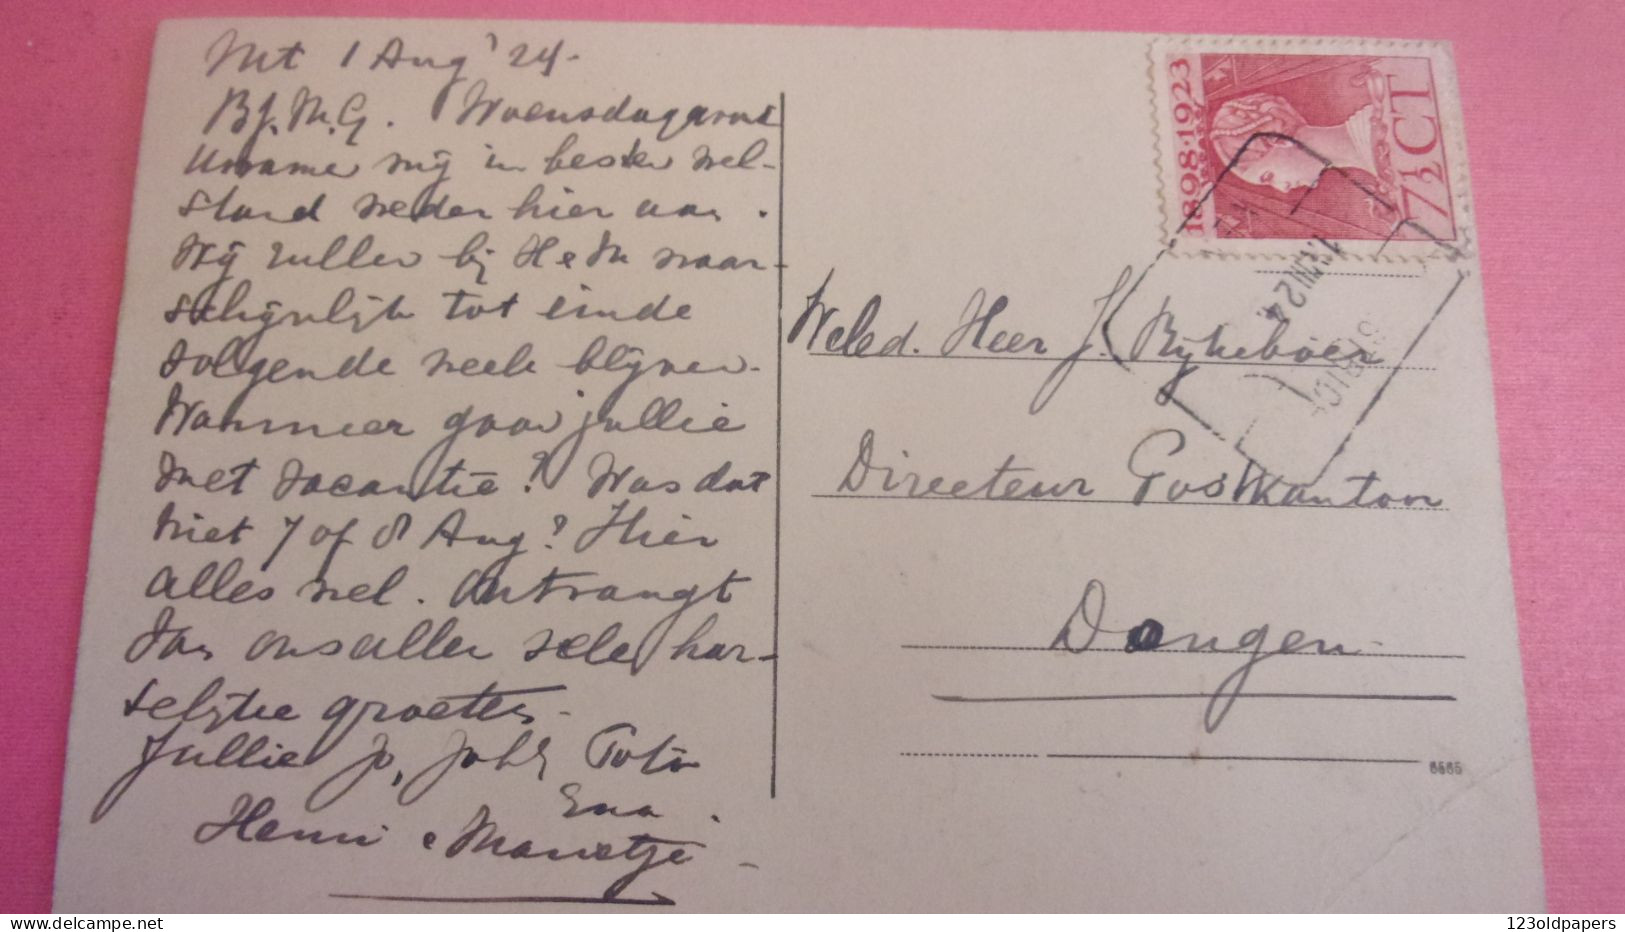 Mt 1 Aug '24.
Bf. M. G. Woensdagavond
kwamen wij in besten wel-
stand weder hier aan.
Wij zullen bij H e M waar-
schijnlijk tot einde
volgende week blijven.
Wanneer gaan jullie
met vacantie? Was dat
niet 7 of 8 Aug? Hier
alles wel. Ontvangt
van ons allen vele har-
telijke groeten.
Jullie Jo, Joh,
Ena.
Henri e Marietje
1898·1923
7½ CT
24
Weled. Heer J. Rijkeboer
Directeur Postkantoor
Dongen
6565
123oldpapers